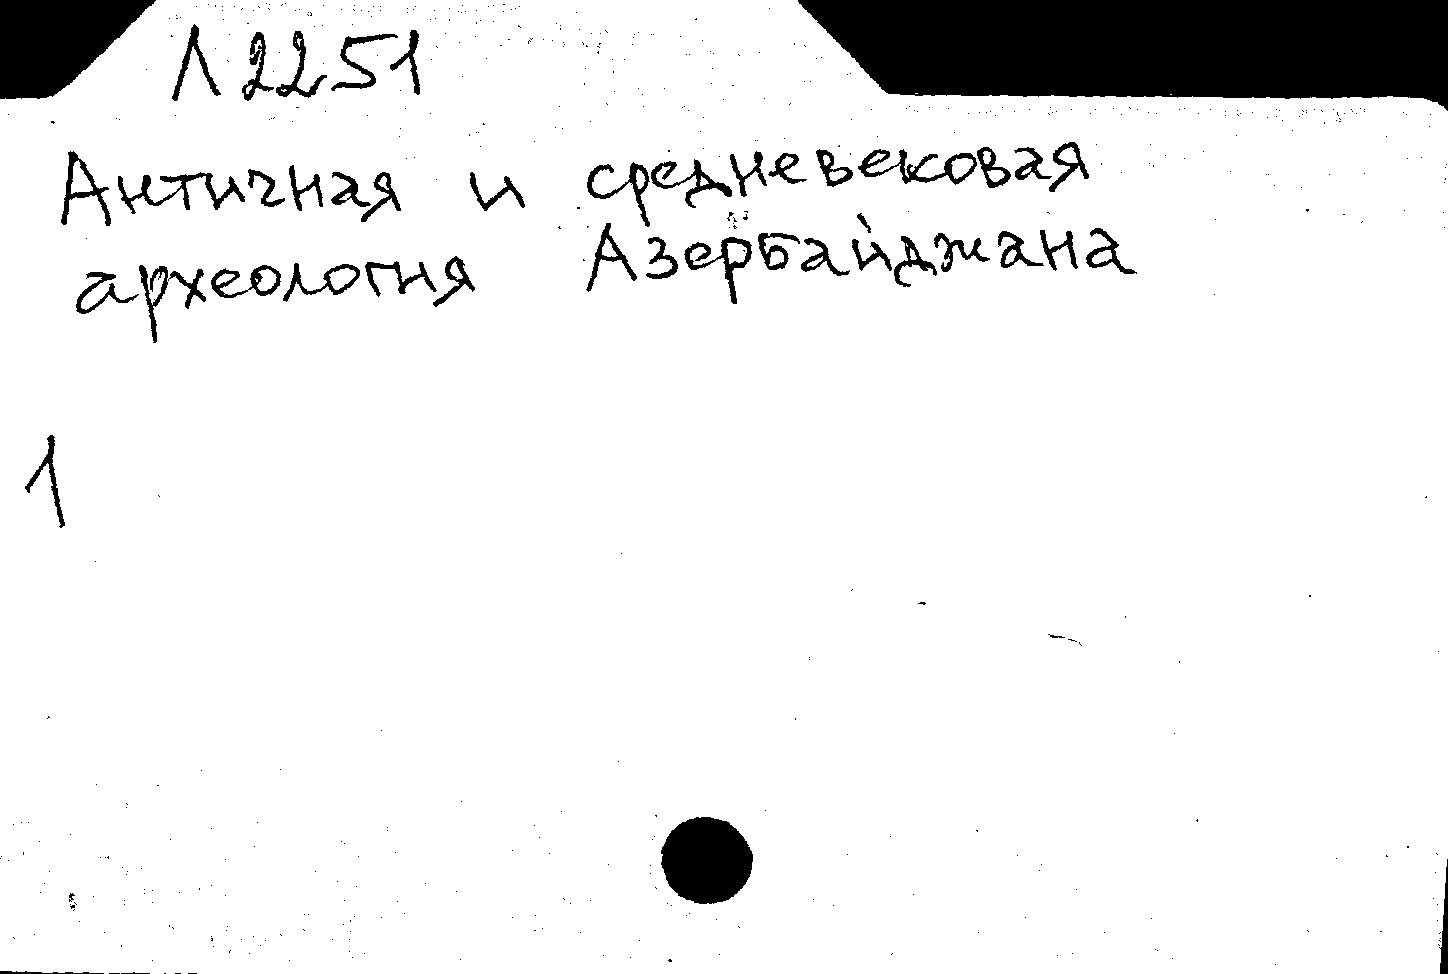 Л2251
Античная и средневековая
археология Азербайджана
1